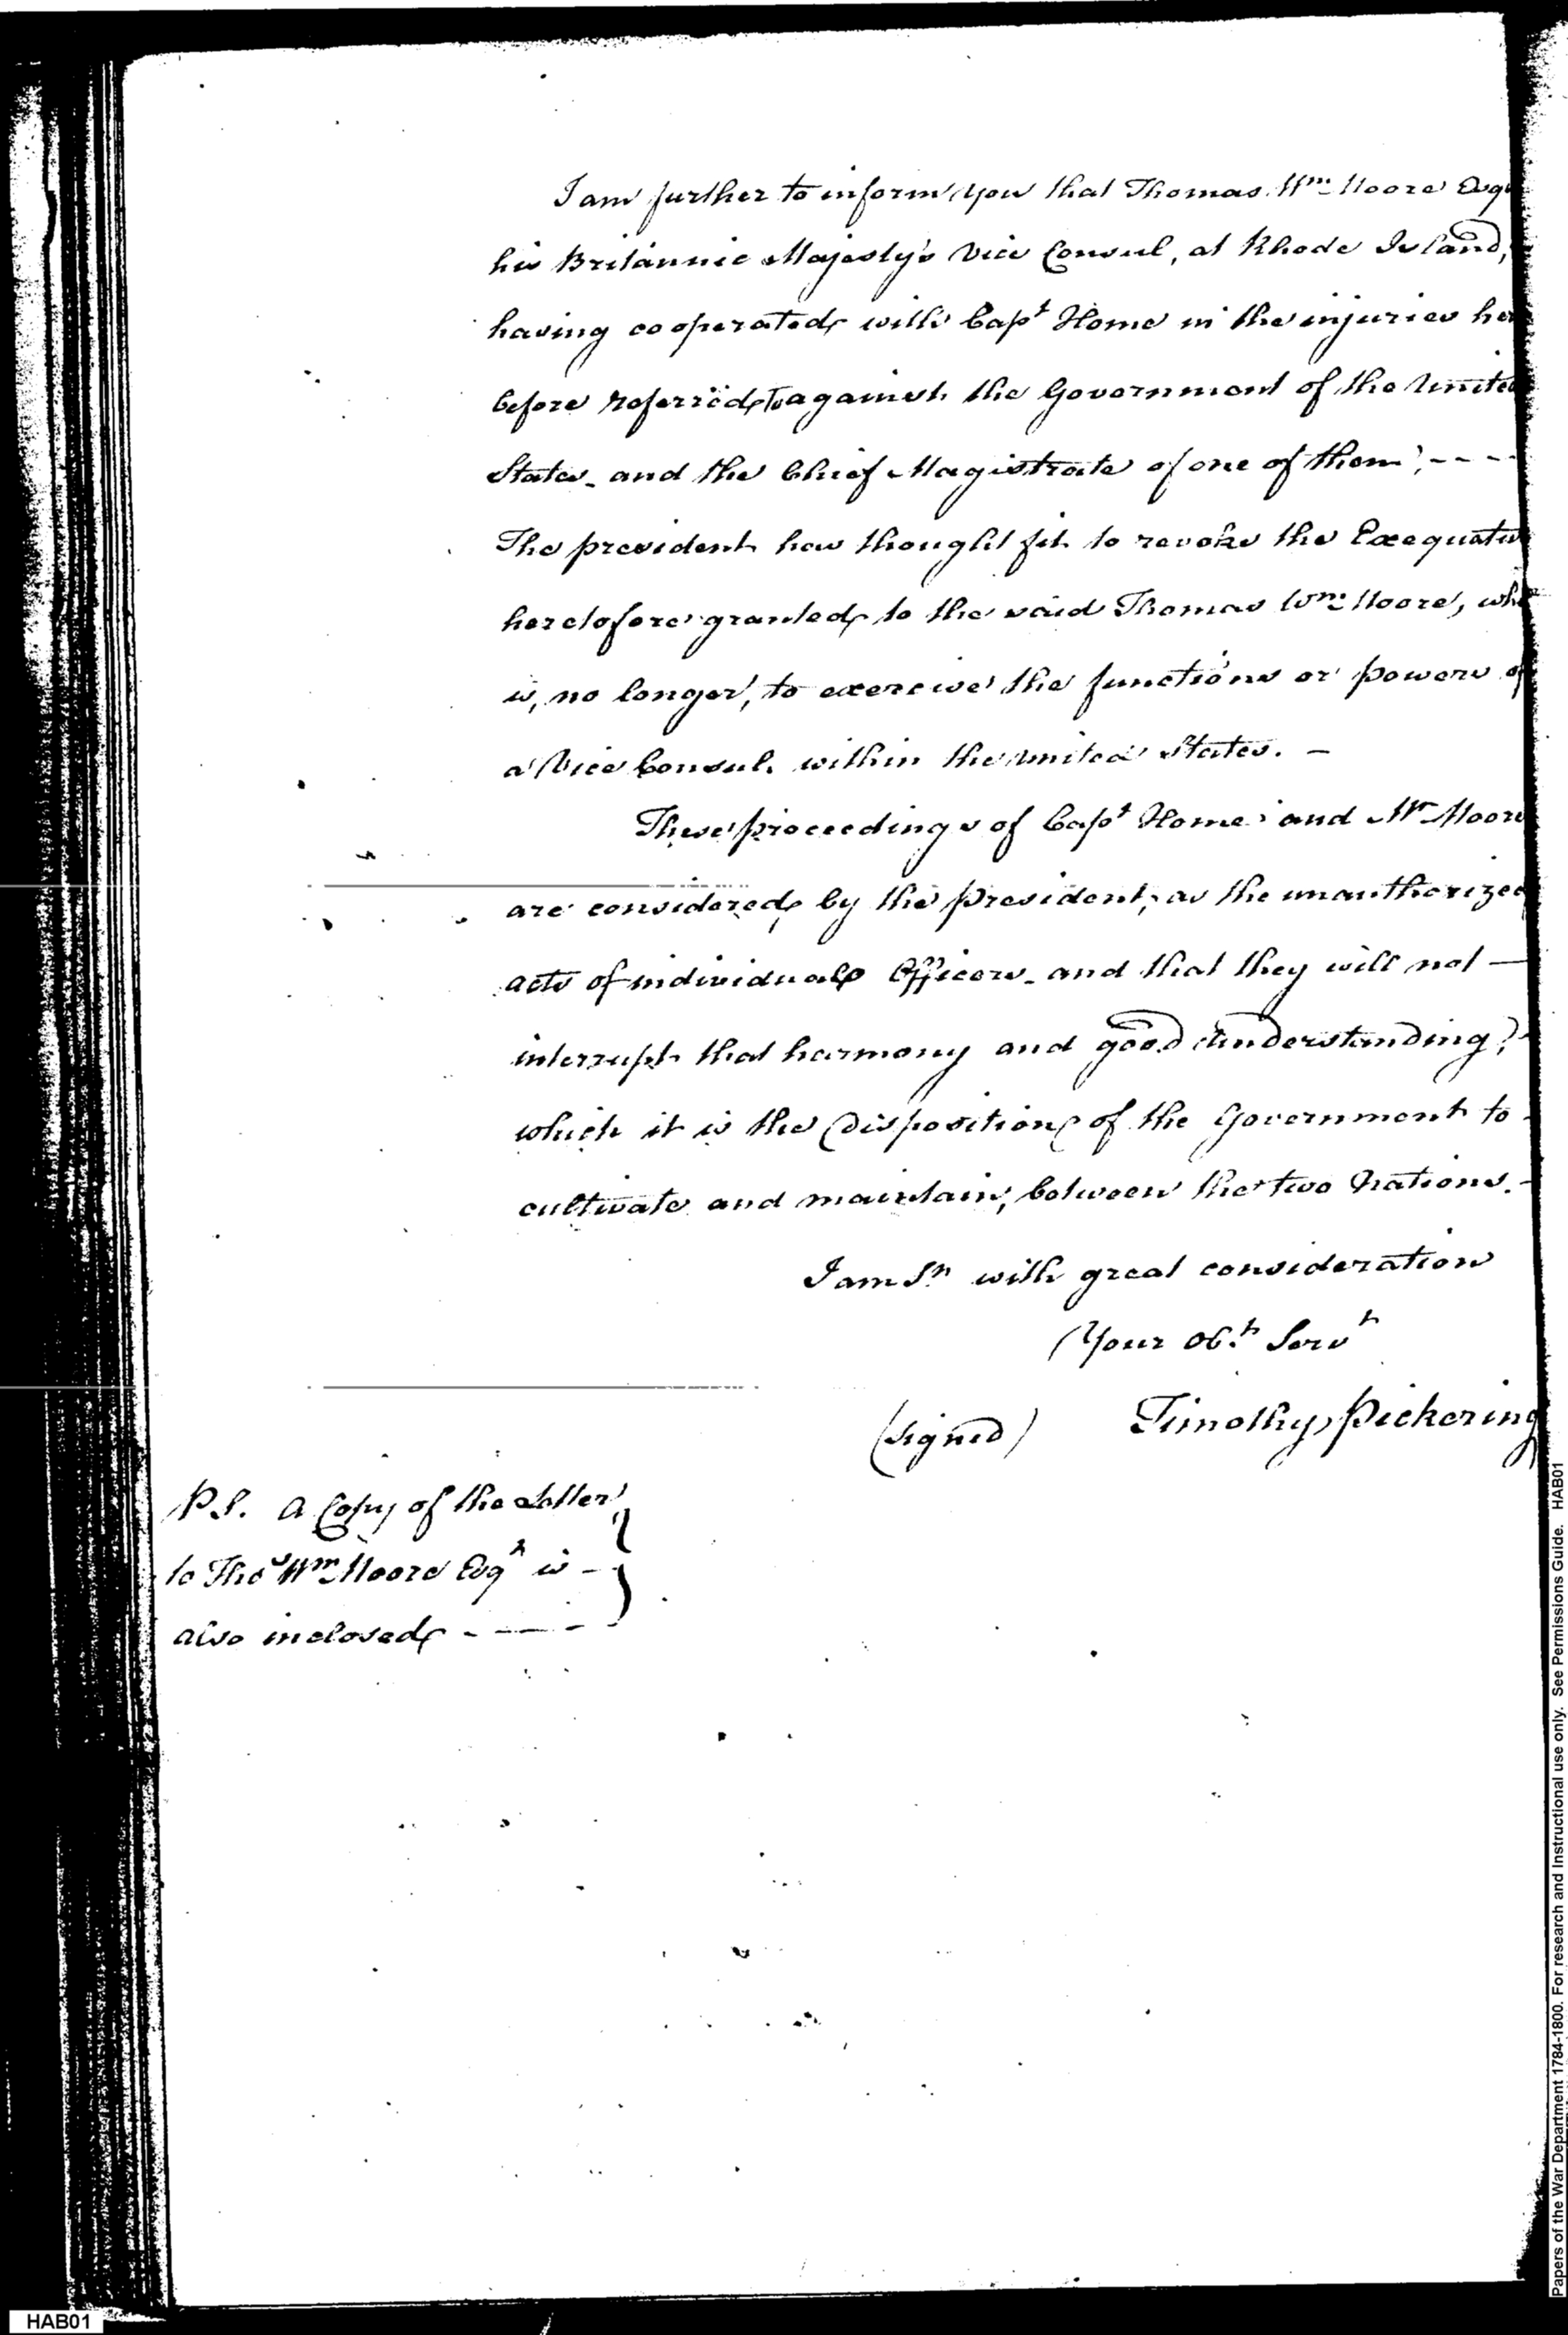 I am further to inform you that Thomas Wm Moore Esqr
his Britannic Majesty's Vice Consul, at Rhode Island,
having cooperated with Capt Home in the injuries here
before referred to against the Government of the United
States and the Chief Magistrate of one of them, ----
The president has thought fit to revoke the Exequatur
heretofore granted to the said Thomas Wm Moore, who
is, no longer, to exercise the functions or powers of
a Vice Consul within the United States. —
These proceedings of Capt Home and Mr Moore
are considered, by the President, as the unauthorized
acts of individual Officers, and that they will not —
interrupt that harmony and good Understanding,
which it is the disposition of the Government to
cultivate and maintain, between the two Nations. -
I am Sr with great consideration
Your Obt Servt
(signed) Timothy Pickering
P.S. A Copy of the Letter
to Thos Wm Moore Esqr is -
also inclosed - — - -
HAB01
Papers of the War Department 1784-1800. For research and Instructional use only. See Permissions Guide. HAB01